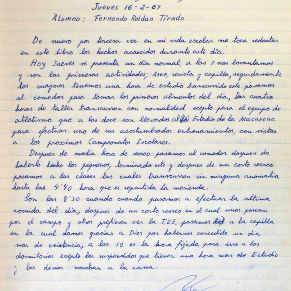 Jueves 16-2-67
Alumno: Fernando Roldán Tirado
De nuevo por tercera vez en mi vida escolar me toca redactar
en este libro los hechos acaecidos durante este día.
Hoy Jueves se presenta un día normal, a las 7 nos levantamos
y son las primeras actividades; Aseo, revista y capilla, seguidamente
los mayores tenemos una hora de estudio transcurrida esta pasamos
al comedor para tomar los primeros alimentos del día, las cuatro
horas de taller transcurren con normalidad, excepto para el equipo de
atletismo que a las doce son llevados al Estadio de la Macarena
para efectuar uno de sus acostumbrados entrenamientos, con vistas
a los próximos Campeonatos Escolares.
Después de media hora de recreo pasamos al comedor después de
haberlo hecho los pequeños, terminado este y después de un corto recreo
pasamos a las clases las cuales transcurren sin ninguna anomalía
hasta las 4'40 hora que es repartida la merienda.
Son las 8'30 cuando pasamos a efectuar la última
comida del día, después de un corto recreo en el cual unos pasean
por el campo y otros prefieren ver la T.V.E., pasamos a la capilla
en la cual damos gracias a Dios por habernos concedido un día
mas de existencia, a las 10 es la hora fijada para irse a los
dormitorios excepto los responsables que tienen una hora mas de Estudio
y los demás marchan a la cama.